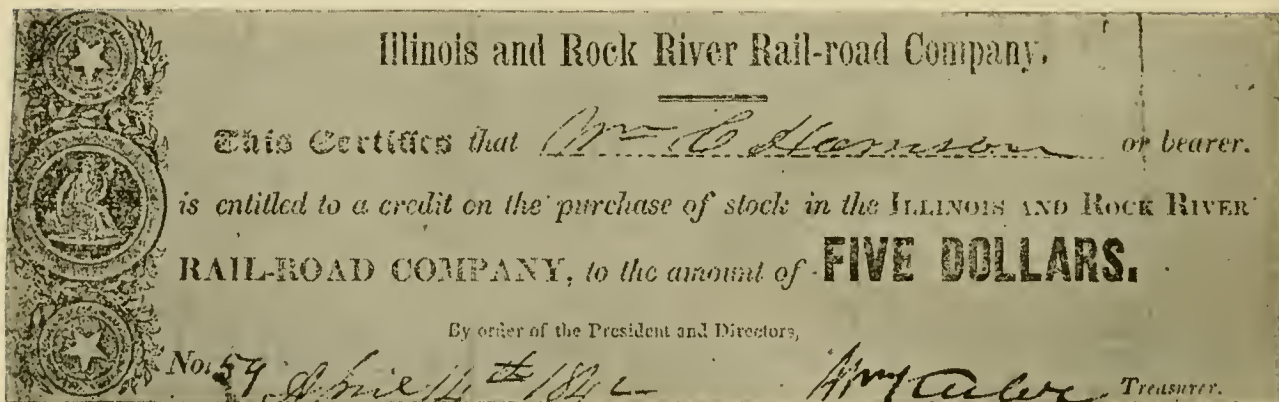 Illinois and Rock River Rail-road Company.
This Certifies that Wm H Harrison or bearer.
is entitled to a credit on the purchase of stock in the ILLINOIS AND ROCK RIVER
RAIL-ROAD COMPANY, to the amount of FIVE DOLLARS.
By order of the President and Directors,
No. 59 April 14th Treasurer.